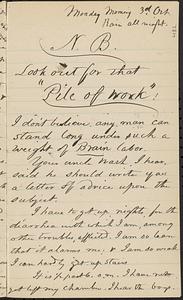 Monday Morning 3rd Oct.
Rain all night.
N. B.
Look out for that
"Pile of Work"!
I don't believe any man can
stand long under such a
weight of Brain labor.
Your uncle Wash, I hear,
said he should write you
a letter of advice upon the
subject.
I have to get up nights for the
diarrhea with which I am, among
other troubles afflicted. I am so lean
that it alarms me, & I am so weak
I can hardly get up stairs.
It is past 6. a.m. I have not
get left my chamber. I hear the boys.